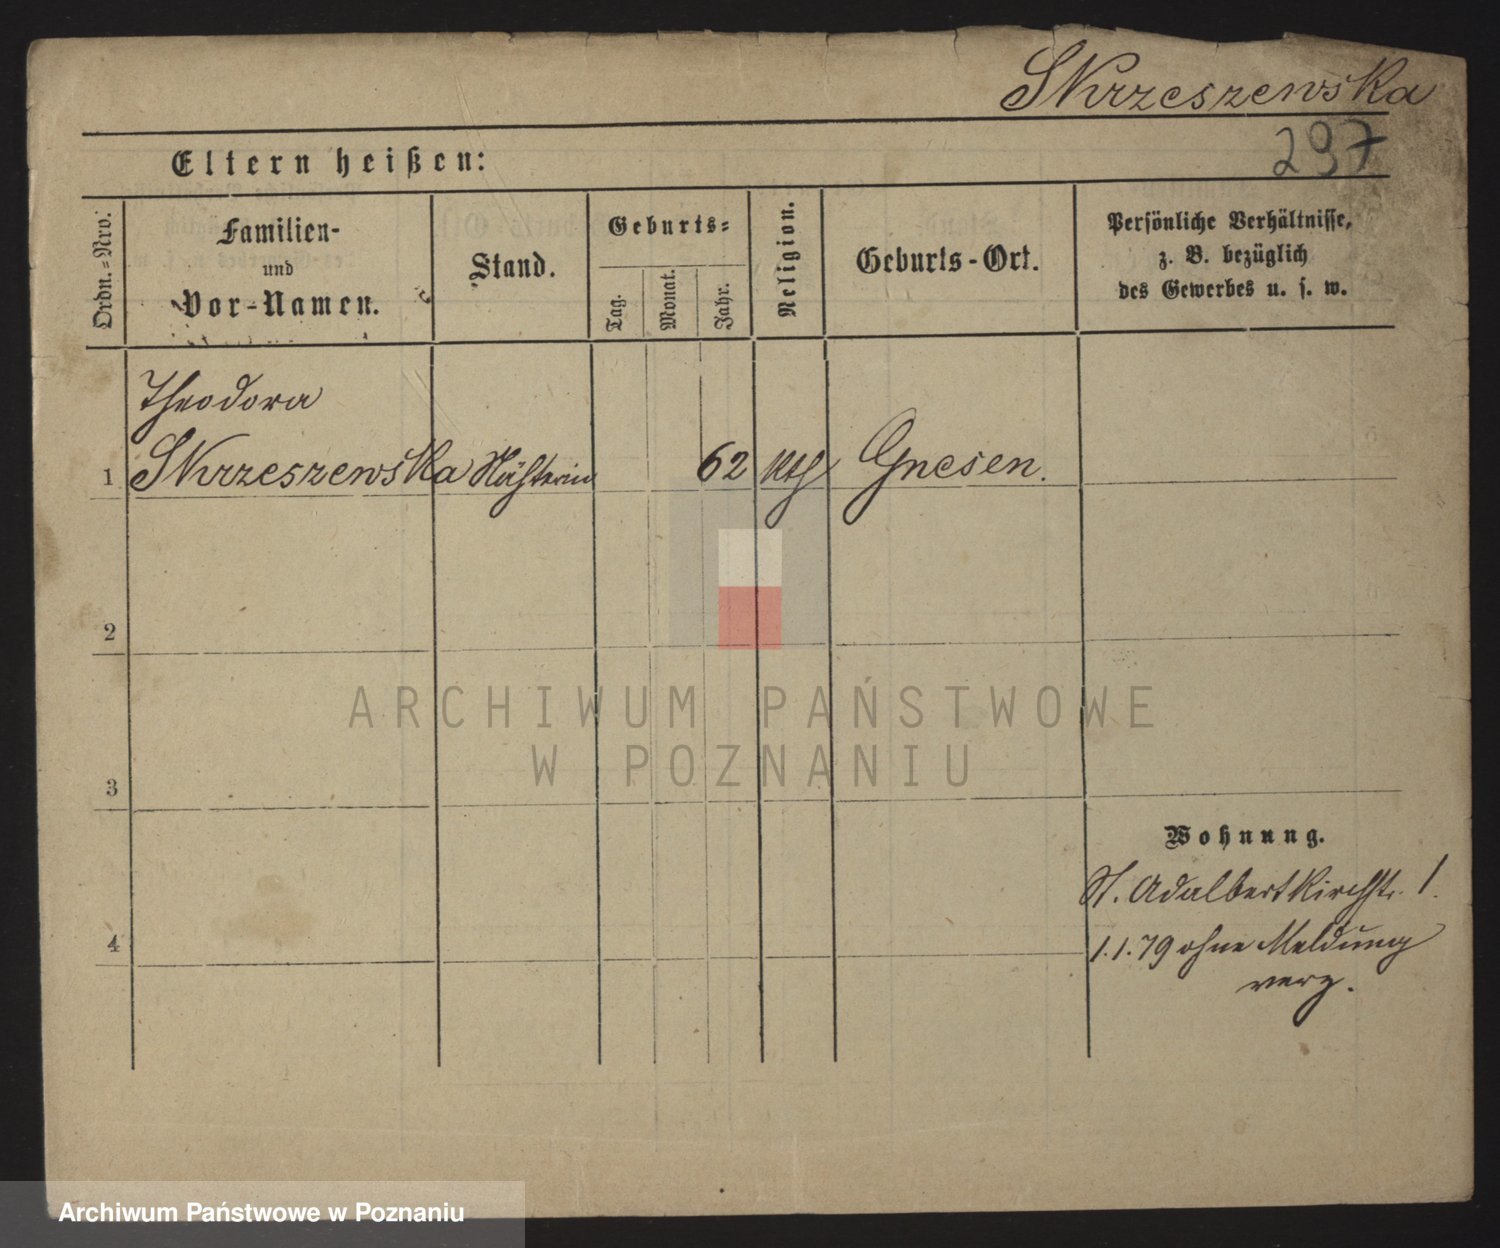 Skrzeszewska
297
Eltern heißen:
Ordn.-Nro.
Familien-
und
Vor-Namen.
Stand.
Geburts-
Tag.
Monat.
Jahr.
Religion.
Geburts-Ort.
Persönliche Verhältnisse,
z. B. bezüglich
des Gewerbes u. s. w.
Theodora
1 Skrzeszewska Nähterin 62 kth Gnesen.
2
ARCHIWUM PAŃSTWOWE
W POZNANIU
3
Wohnung.
St. Adalbertkirchstr. 1.
4
1.1.79 ohne Meldung
verz.
Archiwum Państwowe w Poznaniu